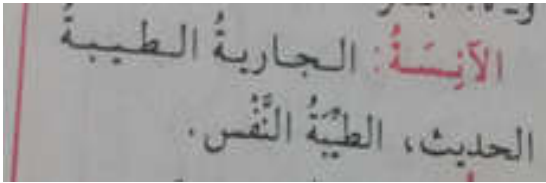 الآنِسَةُ: الجاريةُ الطيبةُ
الحديث، الطيِّبَةُ النَّفْس.